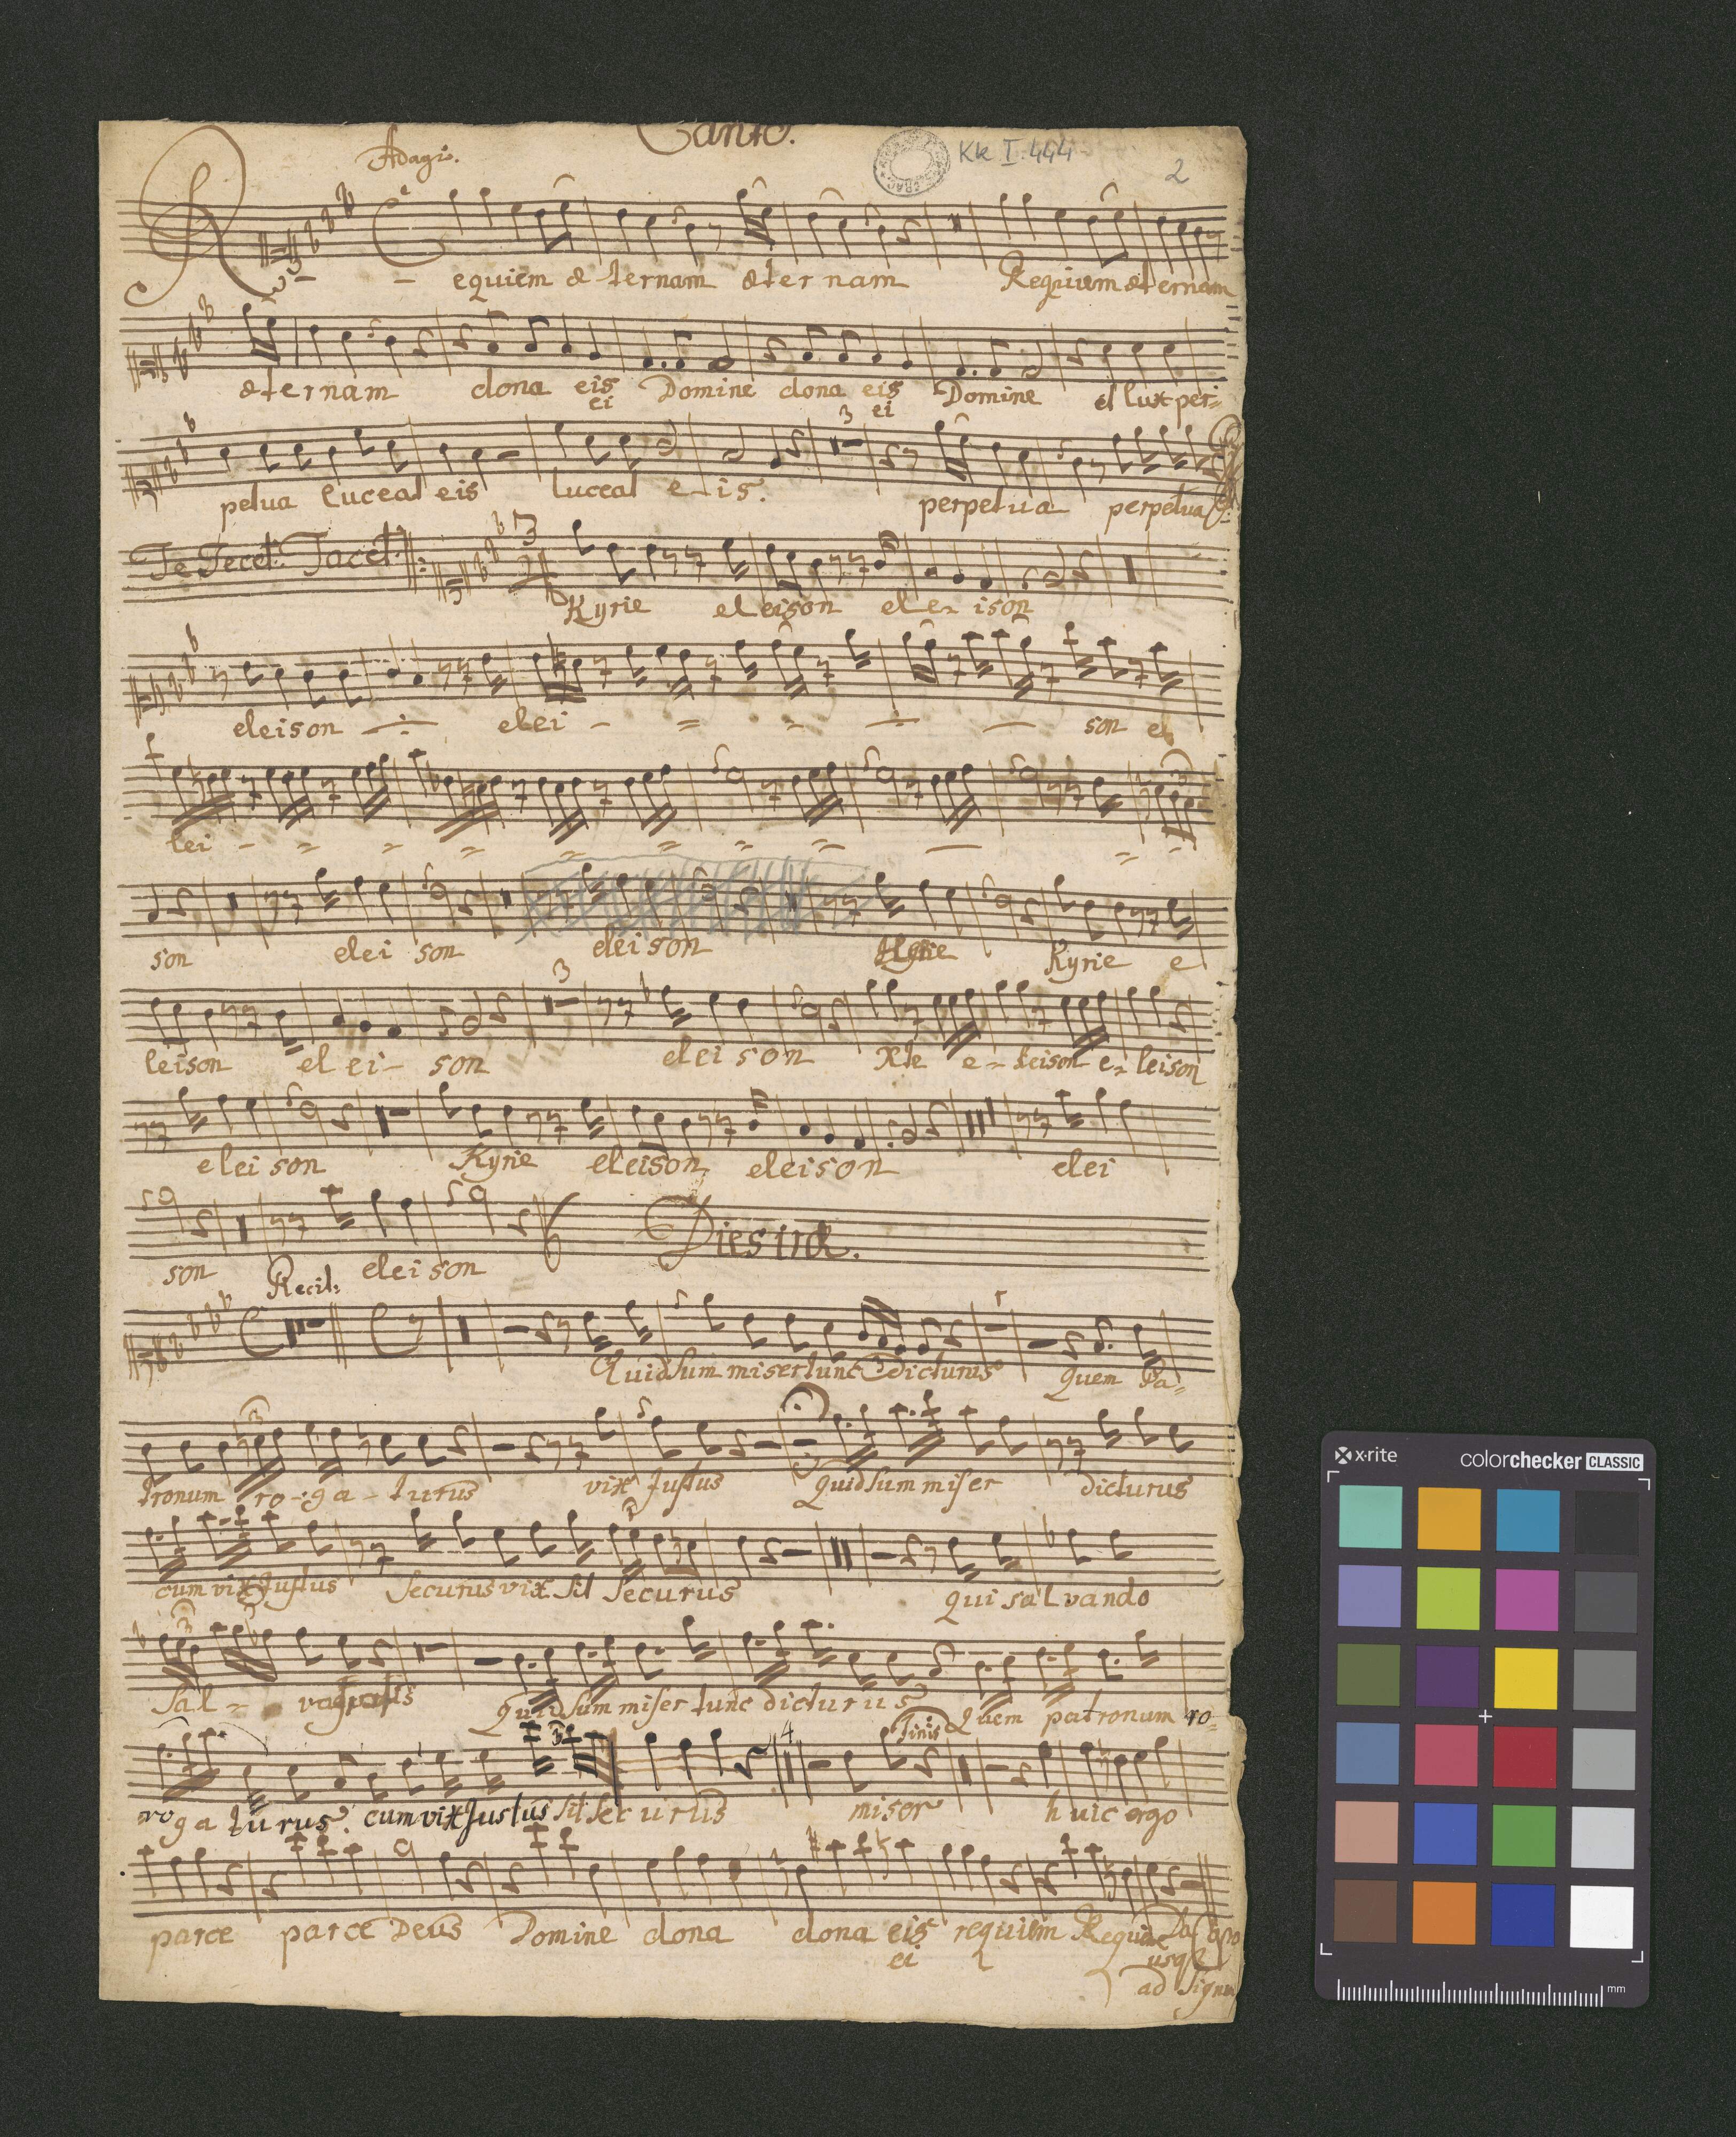 Canto.
Adagio.
Kk I. 444
2
Requiem æ-ternam æternam Requiem æternam
æternam dona eis Domine dona eis Domine et lux per=
ei ei
petua luceat eis luceat e-is. perpetua perpetua
3
Te Decet: Tacet
3
Kyrie eleison ele-ison
eleison elei - - - son e
lei - - - -
3
son elei son eleison Kyrie e
3
leison elei- son elei son Xte e-leison e-leison
elei son Kyrie eleison eleison elei
son elei son Dies iræ.
Recit:
Quid sum miser tunc dicturus Quem Pa=
3
3
tronum ro-ga-turus vix Justus Quid sum miser dicturus
cum vix Justus Securus vix sit securus qui salvando
3
Sal - Quid sum miser tunc dicturus Quem patronum ro=
3
4
Finis
roga turus. cum vix Justus sit securus miser huic ergo
parce parce Deus Domine dona dona eis requiem Requiem Da Capo
ei
usq
ad Signum
x·rite
colorchecker CLASSIC
mm